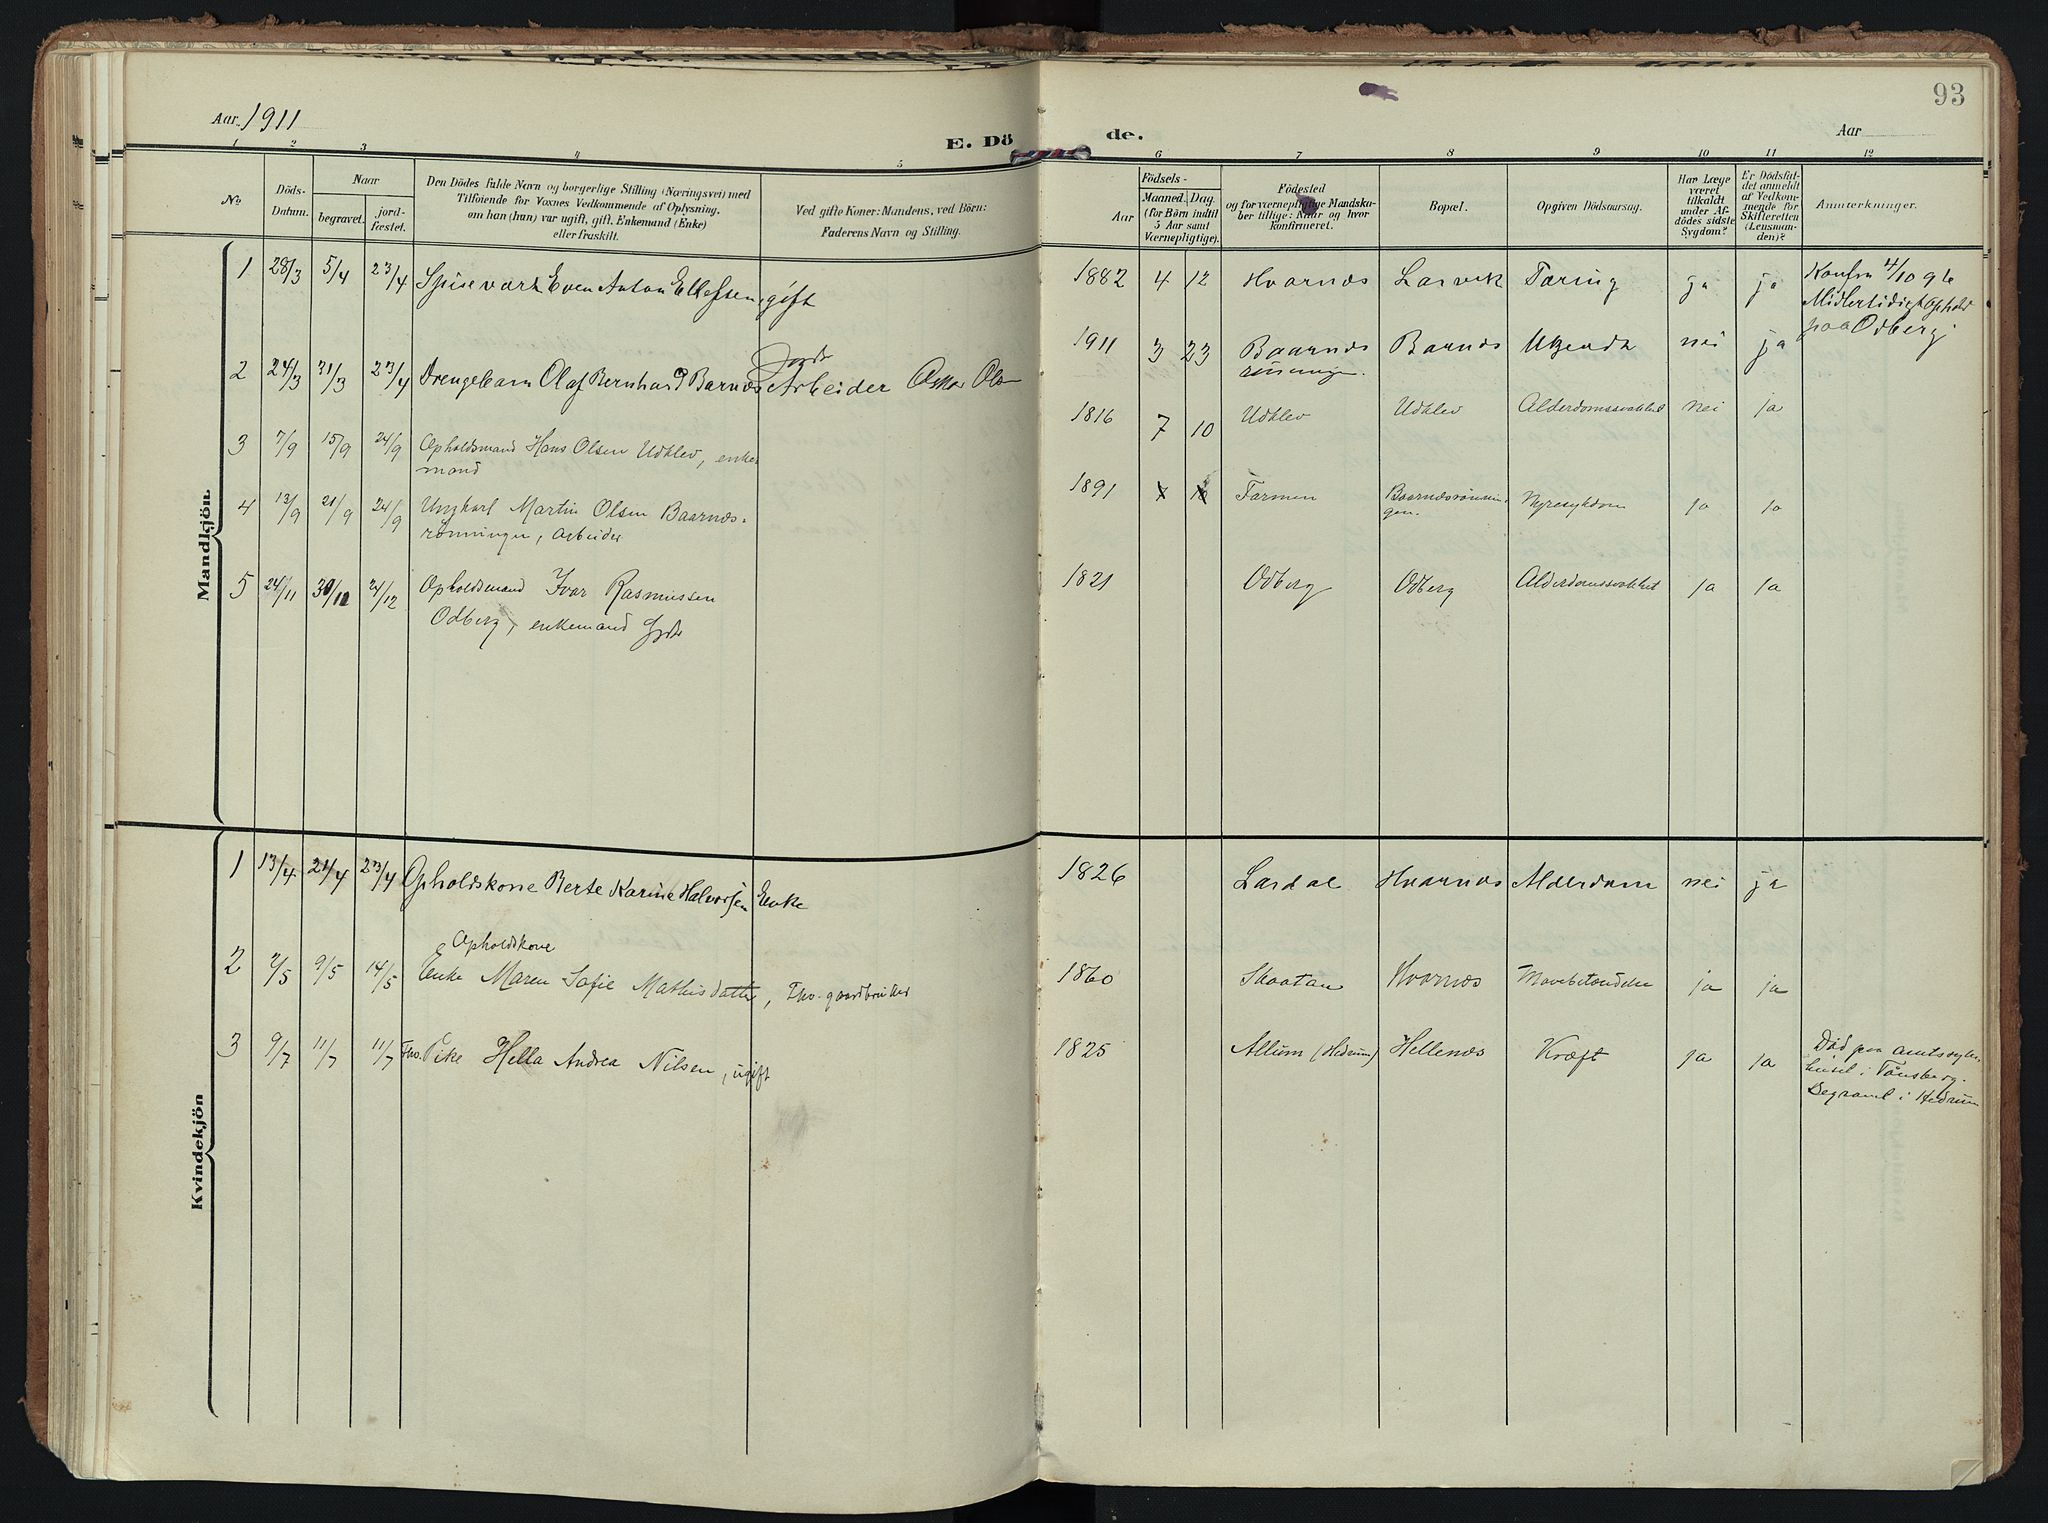 93
Aar. 1911
Aar
E. Döde.
1 2 3 4 5 6 7 8 9 10 11 12
No
Döds-
Datum.
Naar
begravet.
jord-
fæstet.
Den Dödes fulde Navn og borgerlige Stilling (Næringsvei) med
Tilföiende for Voxnes Vedkommende af Oplysning,
om han (hun) var ugift, gift, Enkemand (Enke)
eller fraskilt.
Ved gifte Koner: Mandens, ved Börn:
Faderens Navn og Stilling.
Födsels-
Aar
Maaned.
Dag.
(for Börn indtil
5 Aar samt
Værnepligtige).
Födested
og for værnepligtige Mandska-
ber tillige: Naar og hvor
konfirmeret.
Bopæl.
Opgiven Dödsaarsag.
Har Læge
været
tilkaldt
under Af-
dödes sidste
Sygdom?
Er Dödsfal-
det anmeldt
af Vedkom-
mende for
Skifteretten
(Lensman-
den)?
Anmærkninger.
Mandkjön.
1 28/3 5/4 23/4 Spisevært Even Anton Ellefsen, gift 1882 4 12 Hvarnes Larvik Tæring ja ja Konfm 4/10 96
Midlertidigt Ophold
paa Odberg
2 24/3 31/3 23/4 Drengebarn Olaf Bernhard Barnæs Arbeider Oskar Olsn 1911 3 23 Baarnæs Barnæs Ukendt nei ja
3 7/9 15/9 24/9 Opholdsmand Hans Olsen Udklev, enke-
mand 1816 7 10 Udklev Udklev Alderdomssvakhet nei ja
4 13/9 21/9 24/9 Ungkarl Martin Olsen Baarnæs-
rönningen, arbeider 1891 Farmen Baarnæsrönnin-
gen. Nyresykdom ja ja
5 24/11 30/11 24/12 Opholdsmand Ivar Rasmussen
Odberg, enkemand 1821 Odberg Odberg Alderdomssvakhet ja ja
Kvindekjön
1 13/4 21/4 23/4 Opholdskone Berte Karine Halvorsen Enke 1826 Lardal Hvarnes Alderdom nei ja
Opholdskone
2 2/5 9/5 14/5 Enke Maren Sofie Mathisdatter, Fhv. gaardbruker 1860 Skaatan Hvarnes Mavebetændelse ja ja
3 9/7 11/7 11/7 Fhv. Pike Hella Andrea Nilsen, ugift 1825 Allum (Hedrum) Hellenes Kræft ja ja Död paa amtssyke-
huset i Tönsberg.
Begravet i Hedrum